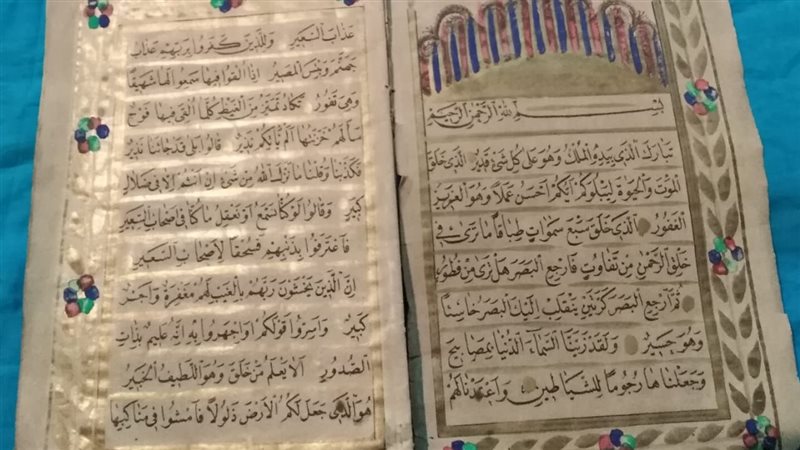 بسم الله الرحمن الرحيم
تبارك الذي بيده الملك وهو على كل شئ قدير الذي خلق
الموت والحيوة ليبلوكم ايكم احسن عملا وهو العزيز
الغفور الذي خلق سبع سموات طباقا ما ترى في
خلق الرحمن من تفاوت فارجع البصر هل ترى من فطور
ثم ارجع البصر كرتين ينقلب اليك البصر خاسئا
وهو حسير ولقد زينا السماء الدنيا بمصابيح
وجعلناها رجوما للشياطين واعتدنا لهم
عذاب السعير وللذين كفروا بربهم عذاب
جهنم وبئس المصير اذا القوا فيها سمعوا لها شهيقا
وهي تفور تكاد تميز من الغيظ كلما القي فيها فوج
سألهم خزنتها الم يأتكم نذير قالوا بلى قد جائنا نذير
فكذبنا وقلنا ما نزل الله من شئ ان انتم الا في ضلال
كبير وقالوا لو كنا نسمع او نعقل ما كنا في اصحاب السعير
فاعترفوا بذنبهم فسحقا لاصحاب السعير
ان الذين يخشون ربهم بالغيب لهم مغفرة واجر
كبير واسروا قولكم او اجهروا به انه عليم بذات
الصدور الا يعلم من خلق وهو اللطيف الخبير
هو الذي جعل لكم الارض ذلولا فامشوا في مناكبها